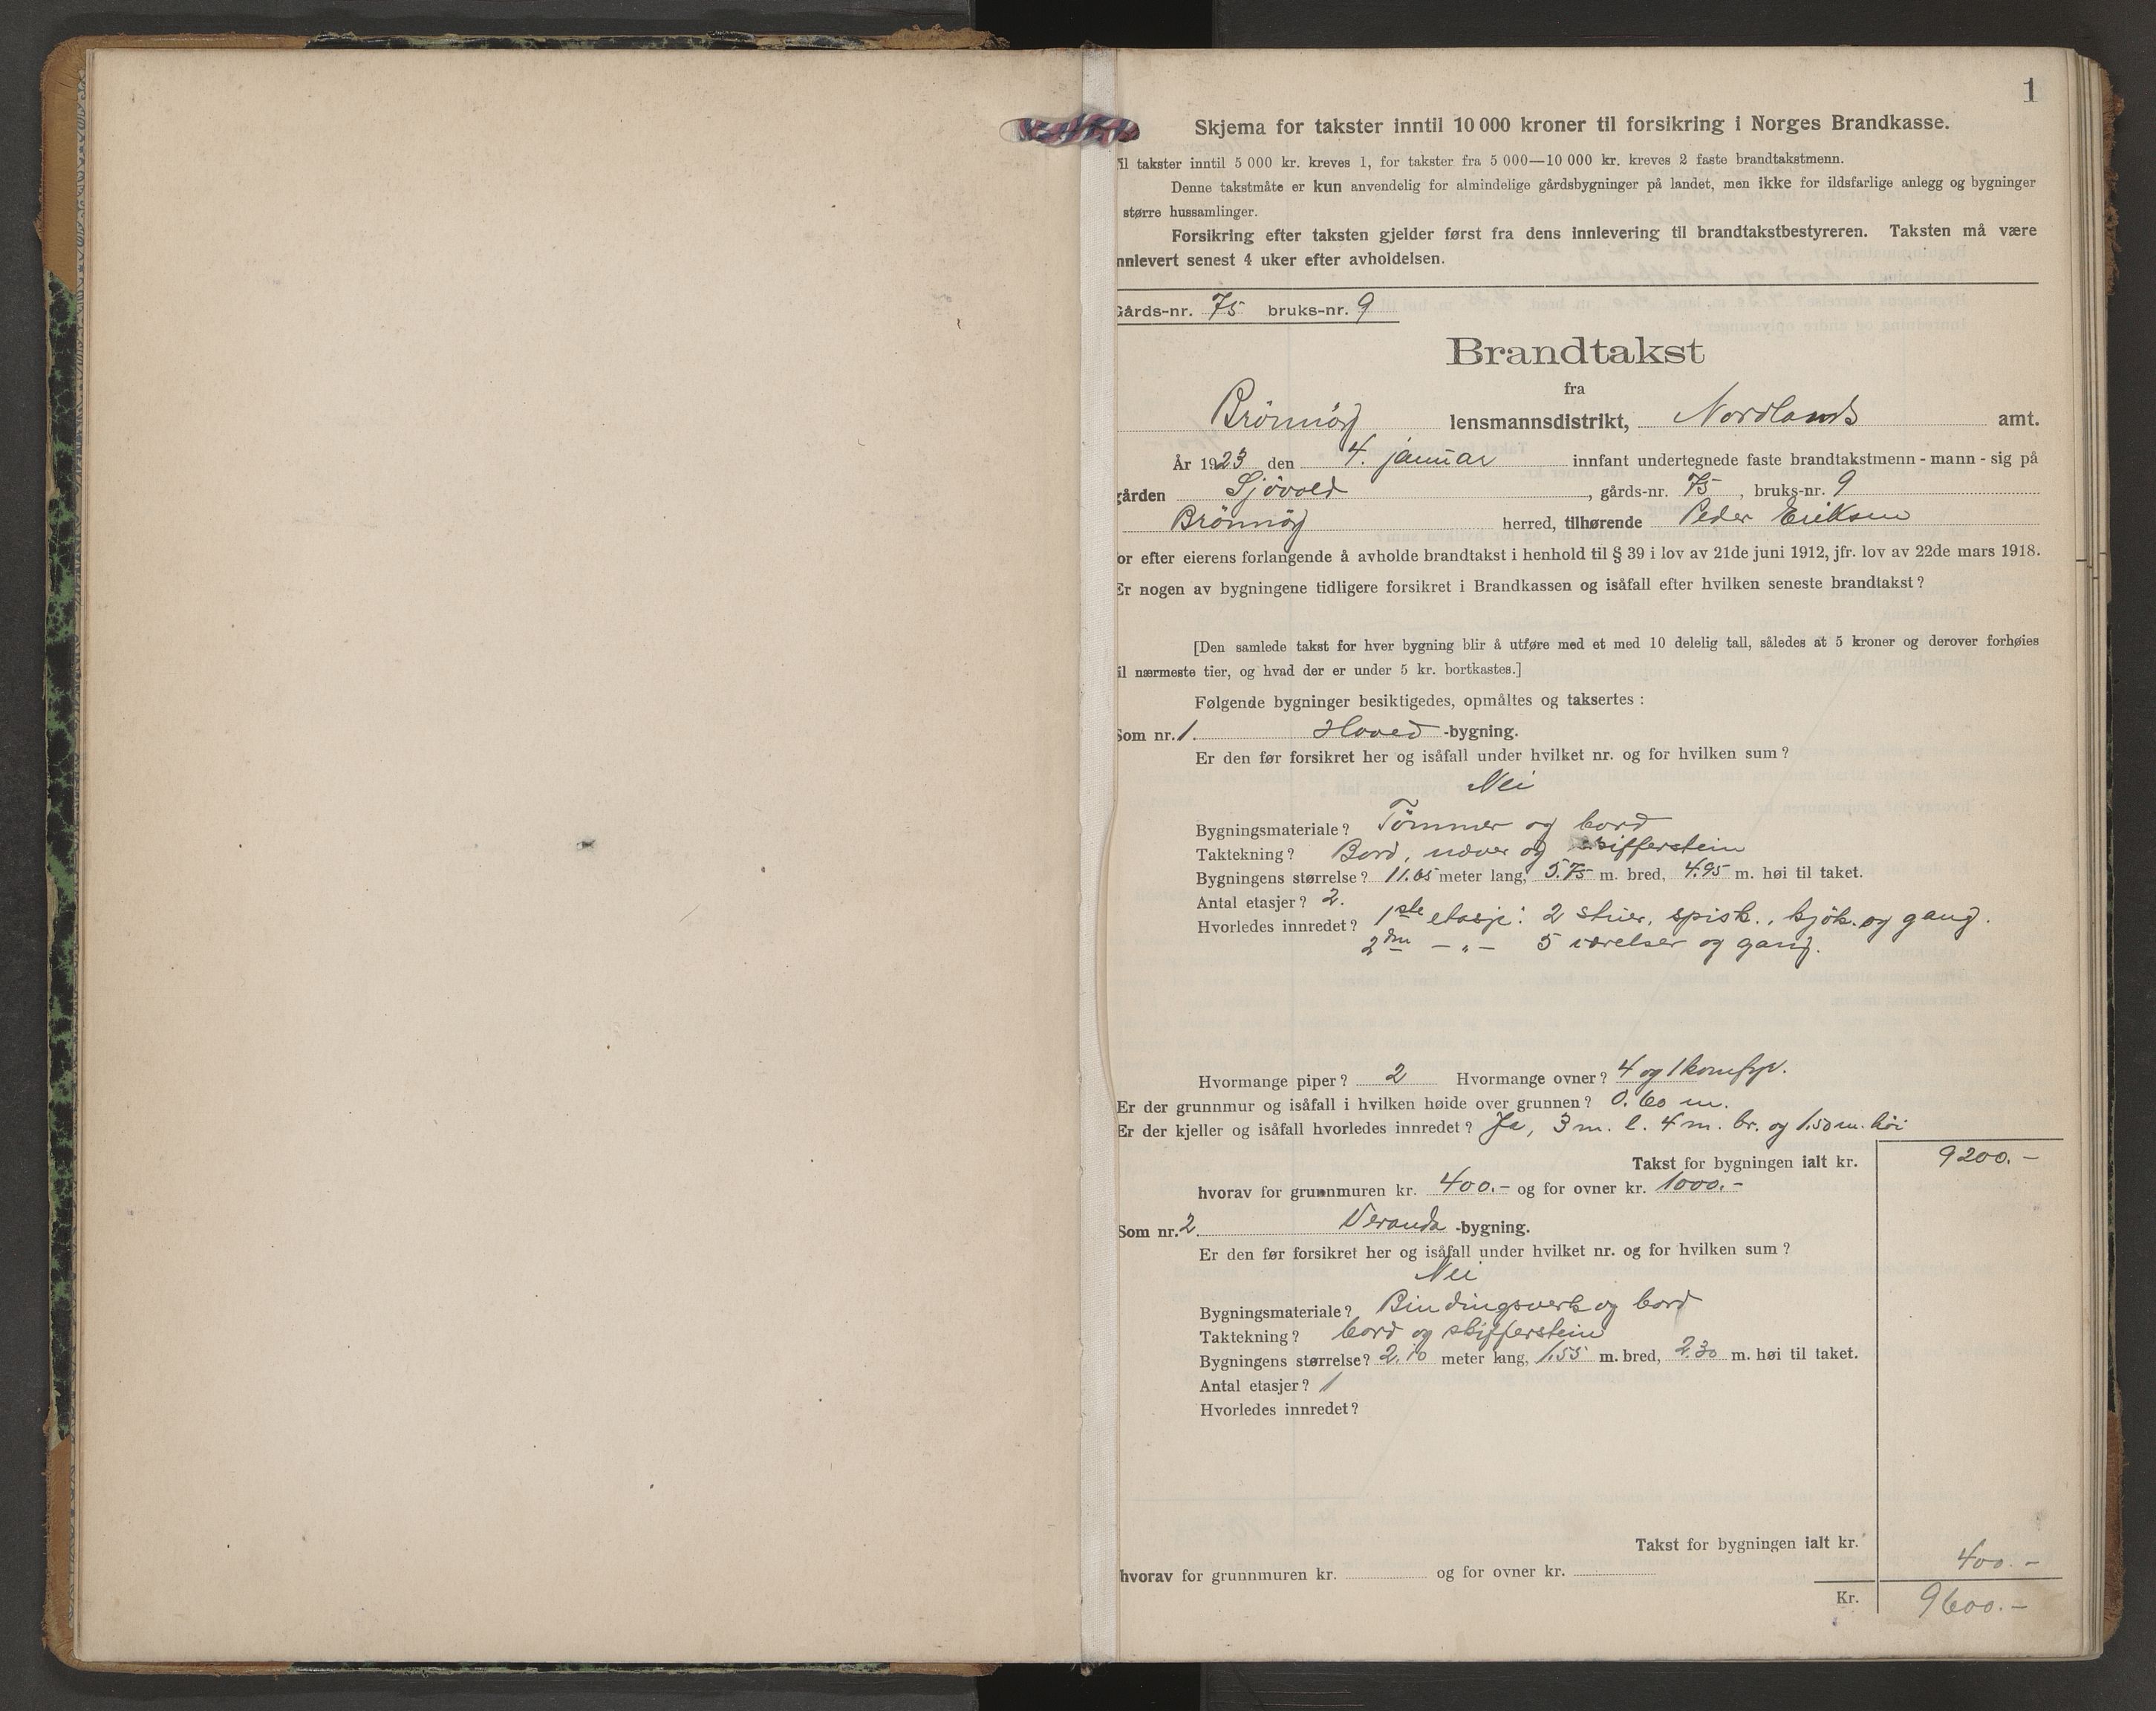 1
Skjema for takster inntil 10 000 kroner til forsikring i Norges Brandkasse.
il takster inntil 5 000 kr. kreves 1, for takster fra 5 000—10 000 kr. kreves 2 faste brandtakstmenn.
Denne takstmåte er kun anvendelig for almindelige gårdsbygninger på landet, men ikke for ildsfarlige anlegg og bygninger
større hussamlinger.
Forsikring efter taksten gjelder først fra dens innlevering til brandtakstbestyreren. Taksten må være
nnlevert senest 4 uker efter avholdelsen.
Gårds-nr. 75 bruks-nr. 9
Brandtakst
fra
Brönnöy lensmannsdistrikt, Nordlands amt.
År 1923 den 4. januar innfant undertegnede faste brandtakstmenn - mann - sig på
gården Sjövold, gårds-nr. 75, bruks-nr. 9
Brönnöy herred, tilhørende Peder Eriksen
or efter eierens forlangende å avholde brandtakst i henhold til § 39 i lov av 21de juni 1912, jfr. lov av 22de mars 1918.
Er nogen av bygningene tidligere forsikret i Brandkassen og isåfall efter hvilken seneste brandtakst?
[Den samlede takst for hver bygning blir å utføre med et med 10 delelig tall, således at 5 kroner og derover forhøies
il nærmeste tier, og hvad der er under 5 kr. bortkastes.]
Følgende bygninger besiktigedes, opmåltes og taksertes:
Som nr. 1. Hoved -bygning.
Er den før forsikret her og isåfall under hvilket nr. og for hvilken sum?
Nei
Bygningsmateriale? Tömmer og bord
Taktekning? Bord, næver og skifferstein
Bygningens størrelse? 11.65 meter lang, 5.75 m. bred, 4.95 m. høi til taket.
Antal etasjer? 2.
Hvorledes innredet? 1ste etasje: 2 stuer, spisk., kjök. og gang.
2den — „ — 5 værelser og gang.
Hvormange piper? 2 Hvormange ovner? 4 og 1 komfyr.
Er der grunnmur og isåfall i hvilken høide over grunnen? 0.60 m.
Er der kjeller og isåfall hvorledes innredet? Ja, 3 m. l. 4 m. br. og 1.50 m. höi
Takst for bygningen ialt kr. 9200.-
hvorav for grunnmuren kr. 400.- og for ovner kr. 1000.-
Som nr. 2 Veranda -bygning.
Er den før forsikret her og isåfall under hvilket nr. og for hvilken sum?
Nei
Bygningsmateriale? Bindingsverk og bord
Taktekning? bord og skifferstein
Bygningens størrelse? 2.10 meter lang, 1.55 m. bred, 2.30 m. høi til taket.
Antal etasjer? 1
Hvorledes innredet?
Takst for bygningen ialt kr. 400.-
hvorav for grunnmuren kr. og for ovner kr.
Kr. 9600.-